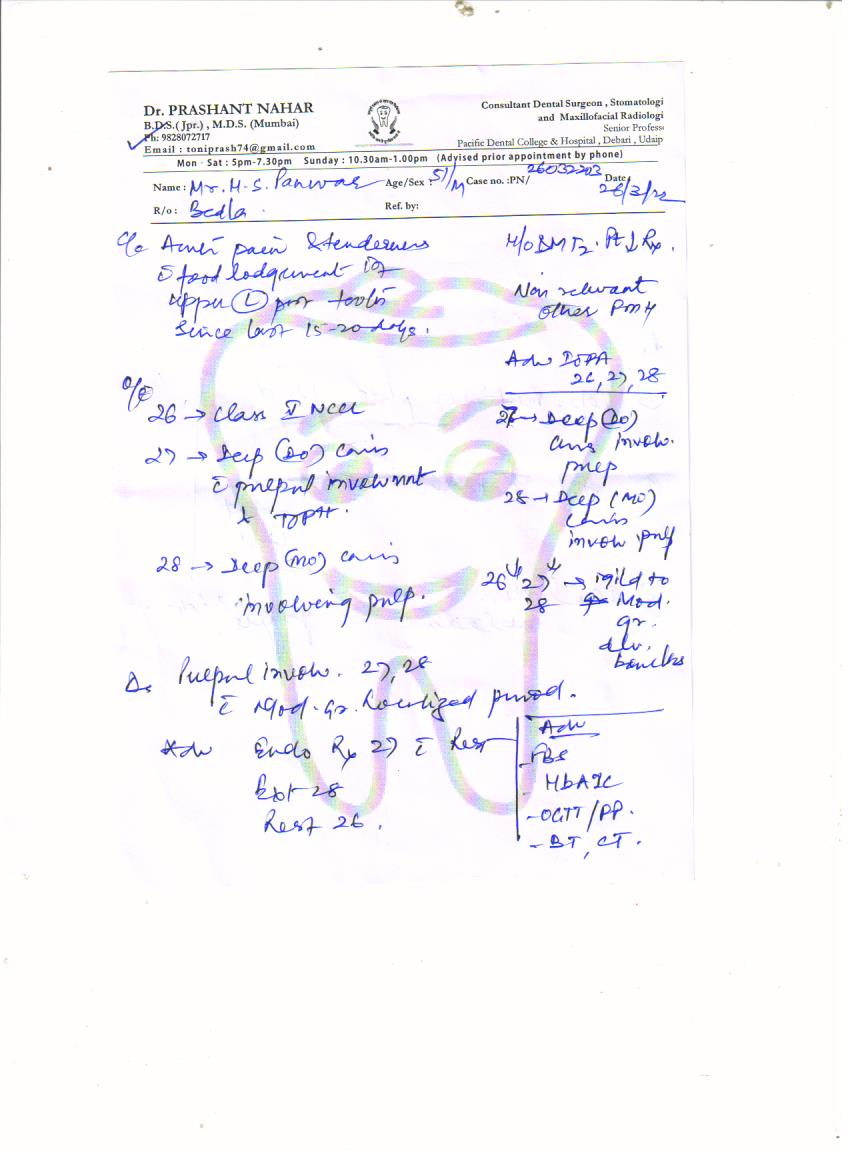 Dr. PRASHANT NAHAR
B.D.S.( Jpr.) , M.D.S. (Mumbai)
Ph: 9828072717
Email : toniprash74@gmail.com
Consultant Dental Surgeon , Stomatologi
and Maxillofacial Radiologi
Senior Profess
Pacific Dental College & Hospital , Debari , Udaip
Mon - Sat : 5pm-7.30pm Sunday : 10.30am-1.00pm (Advised prior appointment by phone)
Name : Mr. H. S. Panwar Age/Sex : 51/M Case no. :PN/ 26032203 Date 26/3/22
R/o : Bedla . Ref. by:
C/o pain & tenderness
c̄ food lodgement
upper (L) post tooth
since last 15-20 days.
H/O DM T2. Pt ↓ Rx.
Non relevant
other PMH
Adv IOPA
26, 27, 28
O/E
26 → Class V NCCL
27 → Deep (DO) caries
c̄ pulpal involvement
& TOP+.
28 → Deep (MO) caries
involving pulp.
27 → Deep (DO)
caries involv.
pulp
28 → Deep (MO)
caries
involv pulp
26 27 → mild to
28 Mod.
gr.
alv.
boneloss
Δs Pulpal involv. 27, 28
c̄ Mod. gr. localized period.
Adv Endo Rx 27 c̄ Rest
Ext 28
Rest 26.
Adv
- FBS
- HbA1C
- OGTT / PP.
- BT, CT.